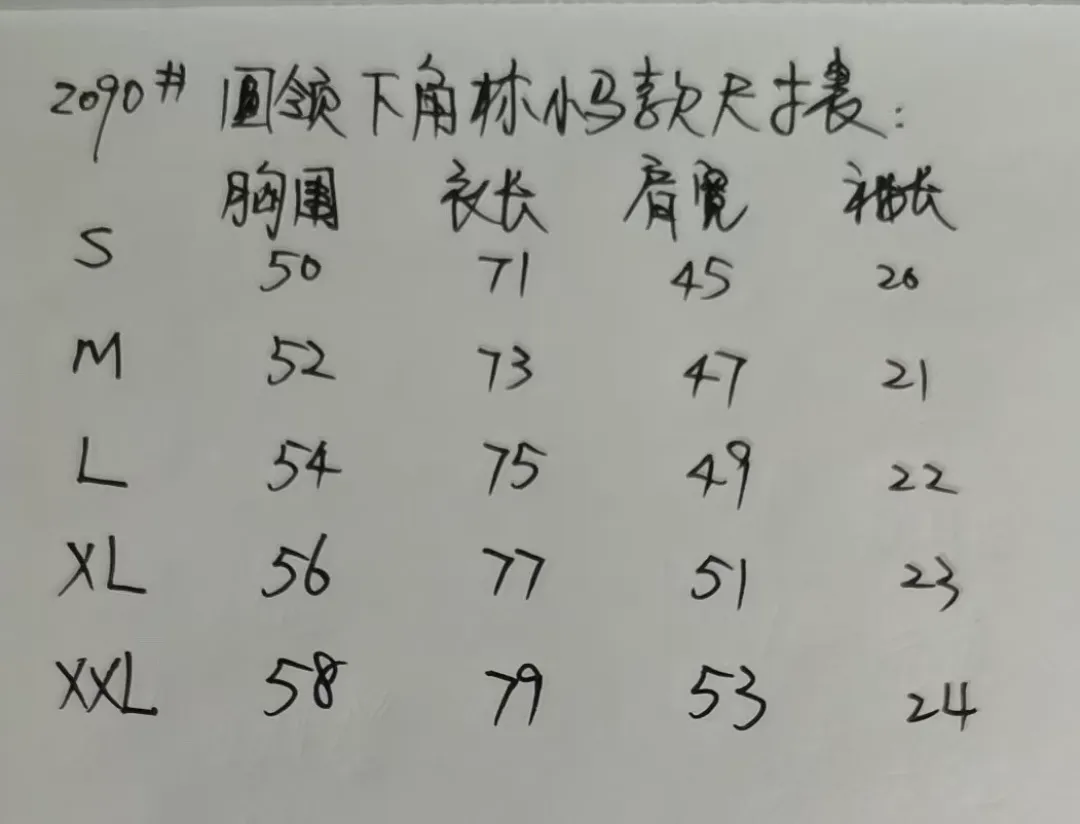 2090# 圆领下角标小马款尺寸表:
胸围 衣长 肩宽 袖长
S 50 71 45 20
M 52 73 47 21
L 54 75 49 22
XL 56 77 51 23
XXL 58 79 53 24